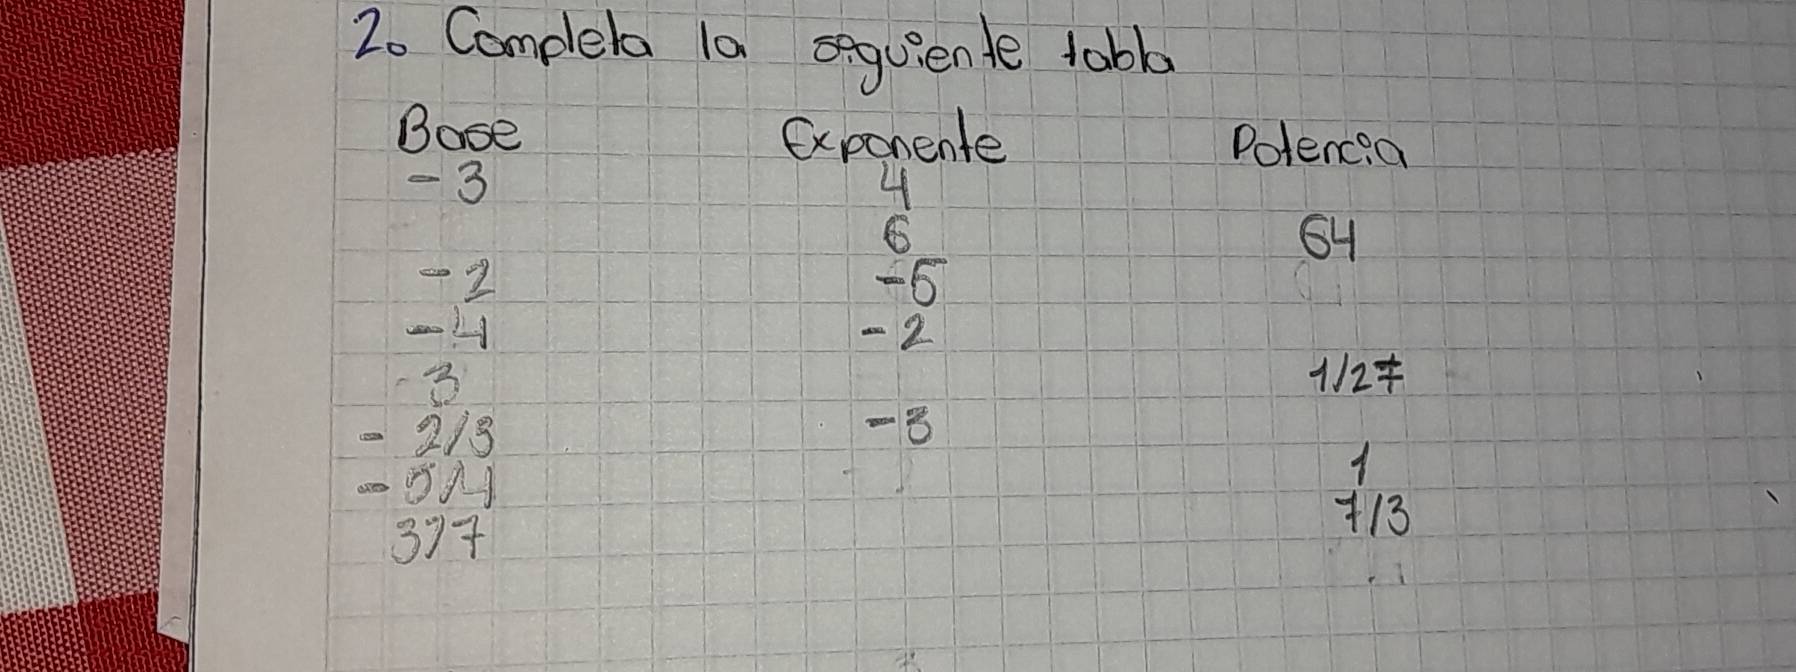 2. Completa la siguiente tabla
Base Exponente Potencia
-3 4
6 64
-2 -5
-4 -2
3 1/27
-2/3 -3
-5/4 1
3/7 7/3